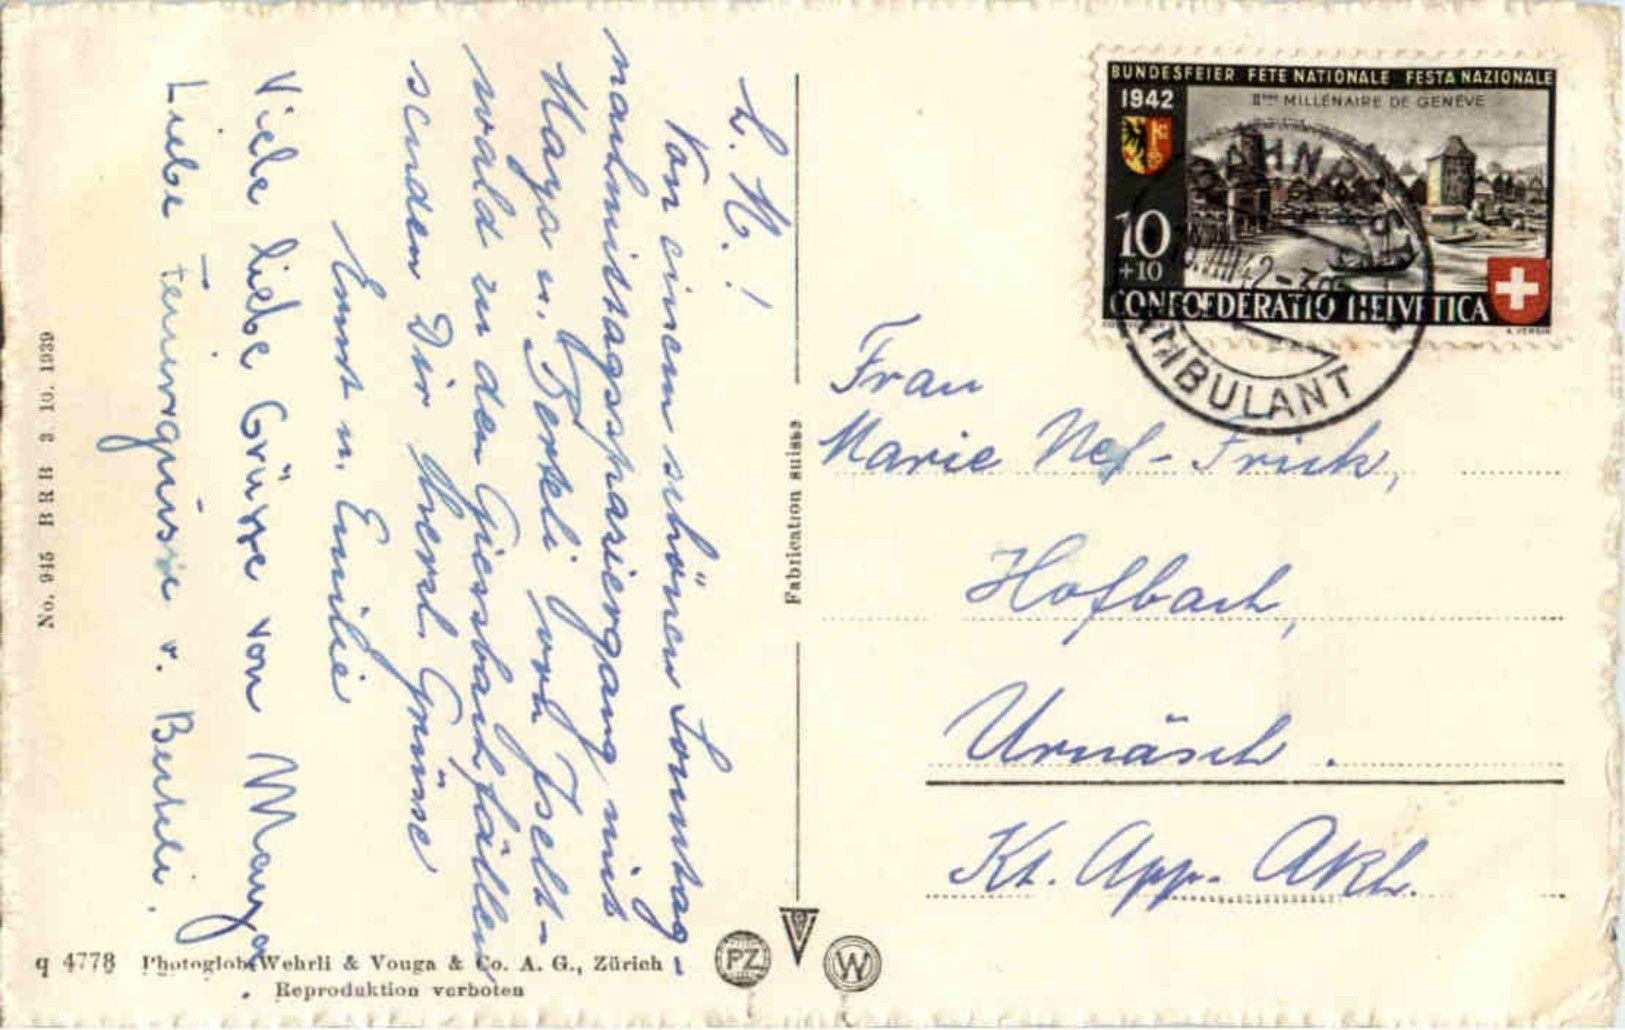 L. M.!
Von einem schönen Sonntag-
nachmittagsspaziergang mit
Maya u. Berteli von Iselt-
wald zu den Giessbachfällen
senden Dir herzl. Grüsse
Ernst u. Emilie
Viele liebe Grüsse von Maya
Liebe Feriengrüsse v. Berteli.
No. 945 BRB 3. 10. 1939
q 4778 Photoglob-Wehrli & Vouga & Co. A. G., Zürich
Reproduktion verboten
Fabrication suisse
PZ
W
BUNDESFEIER FETE NATIONALE FESTA NAZIONALE
1942
IIme MILLENAIRE DE GENÈVE
10
+10
CONFOEDERATIO HELVETICA
AMBULANT
Frau
Marie Nef-Frick,
Hofbach,
Urnäsch.
Kt. App. ARh.